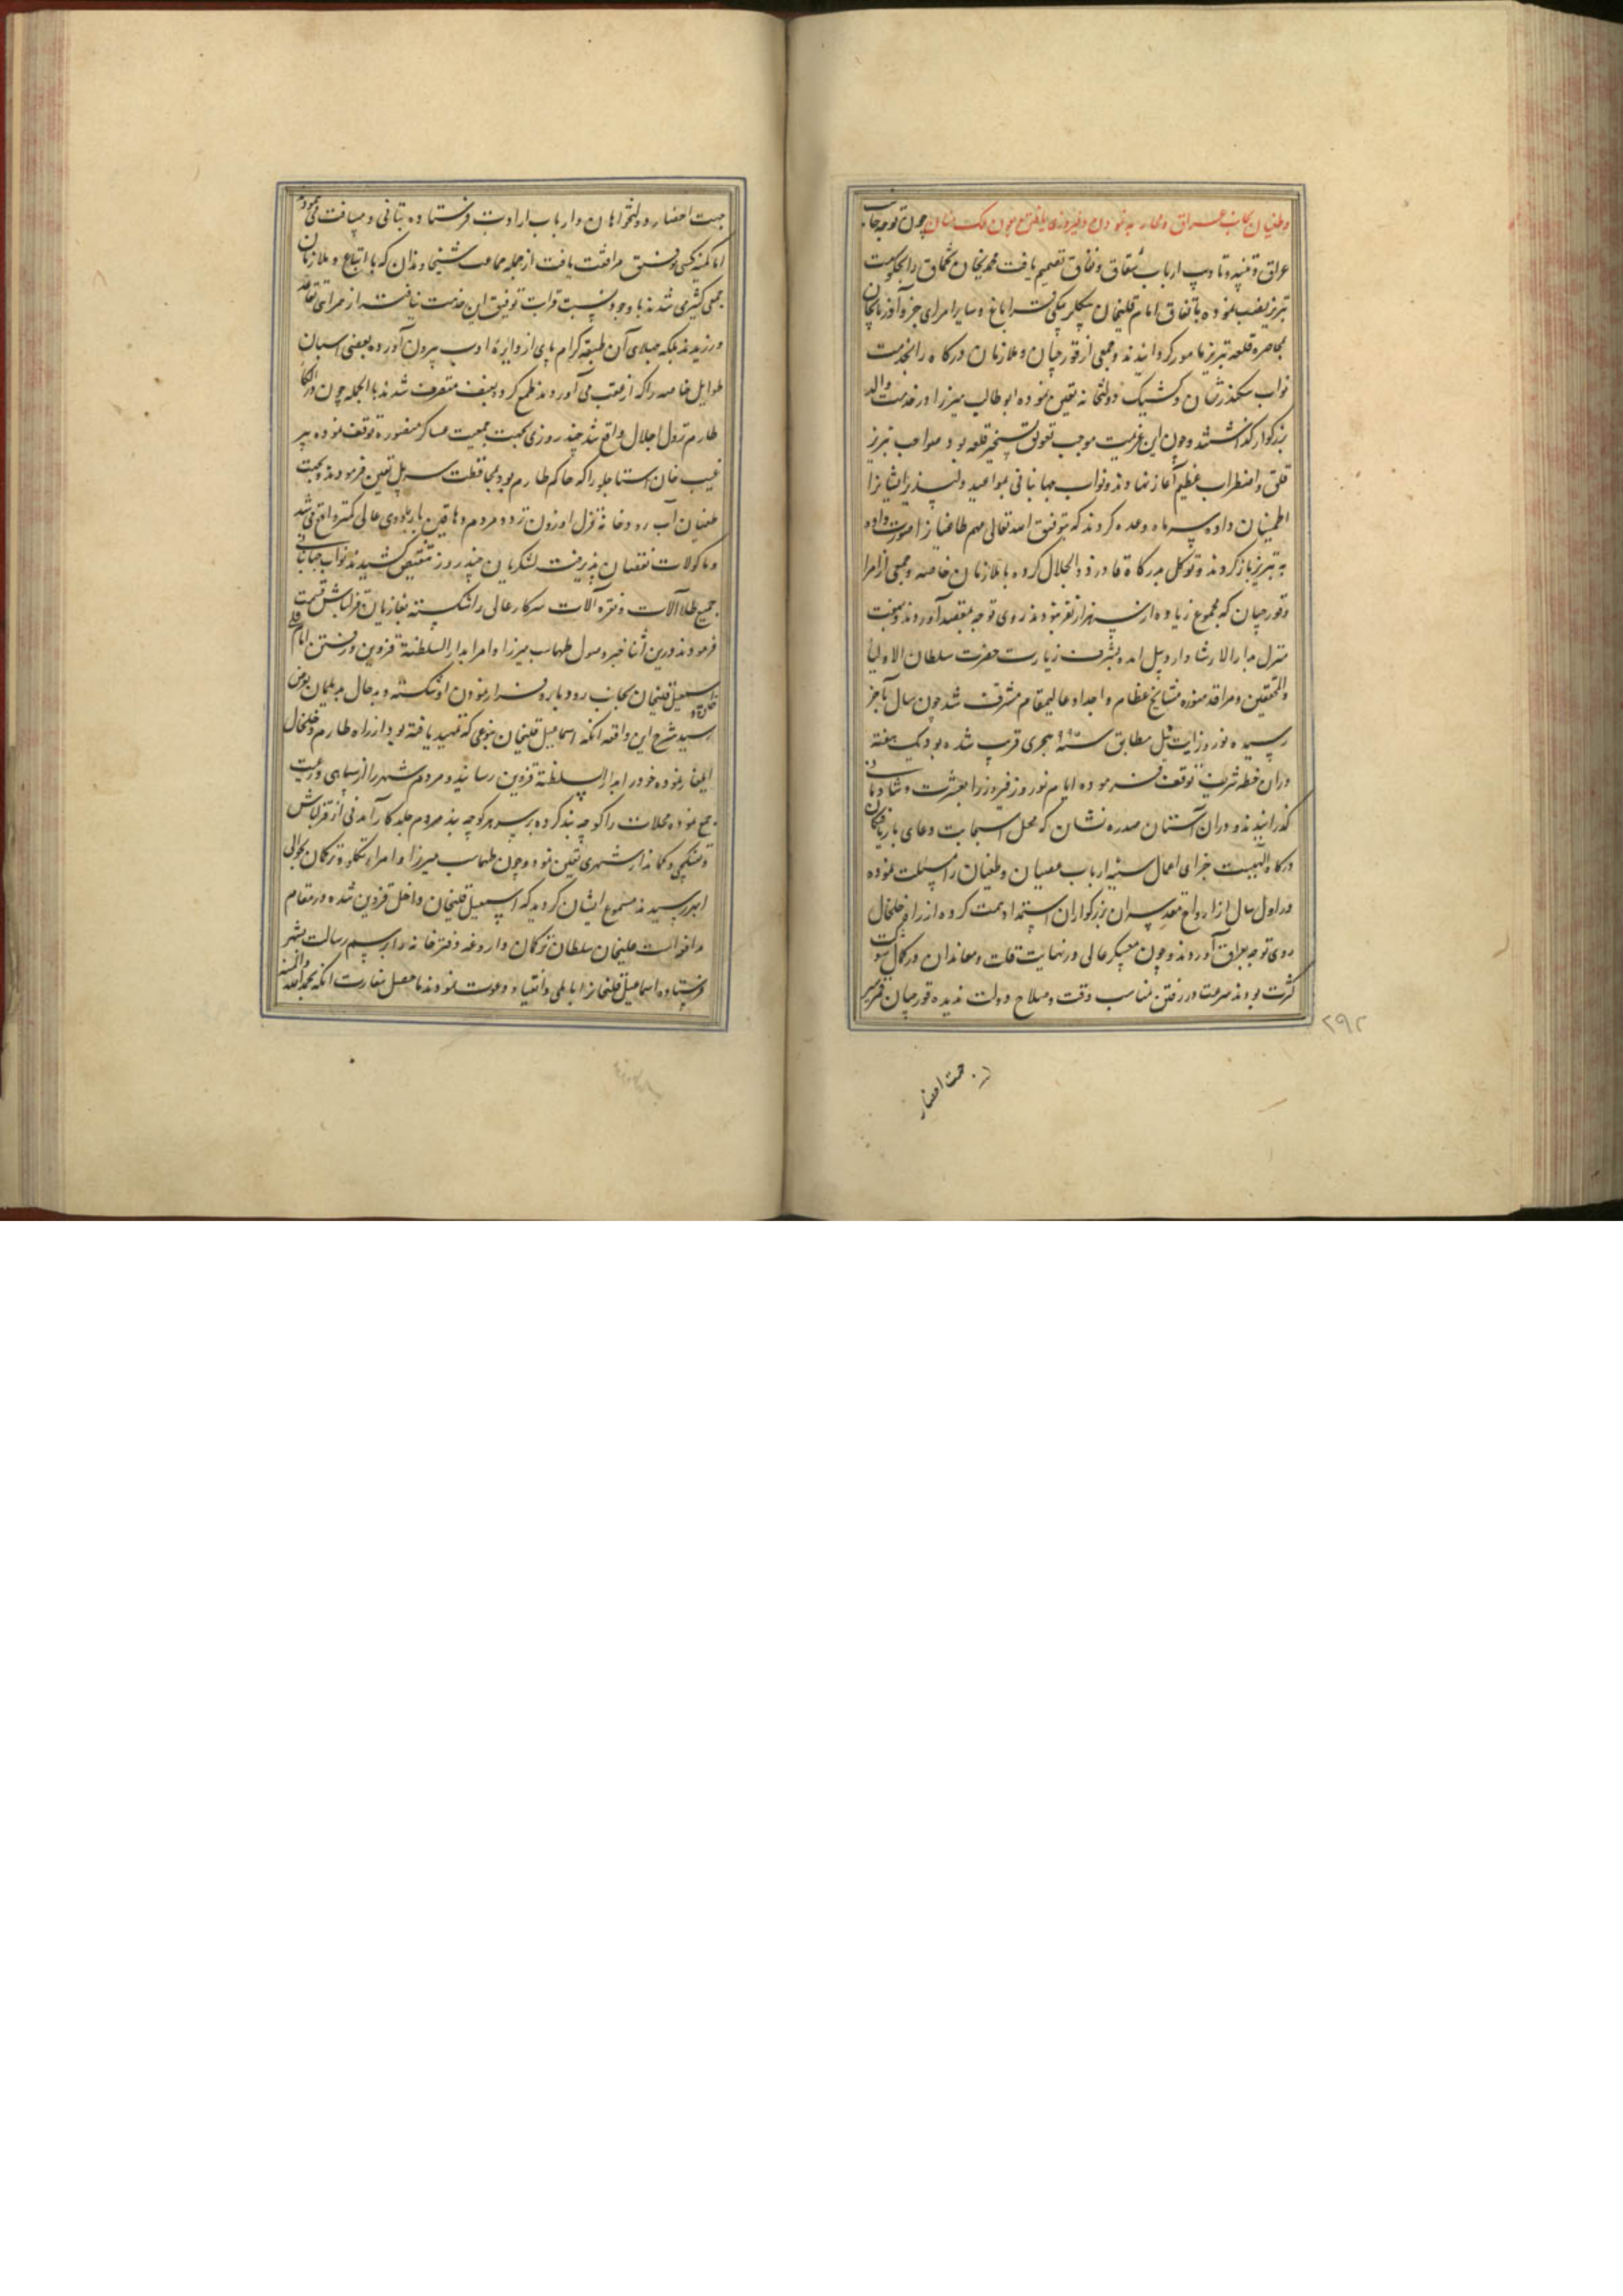 و طغیان بجانب عراق و محاربه نمودن و فیروزی یافتن بعون ملک منان چون توجه جانب
عراق و تنبیه و تادیب ارباب شقاق و نفاق تصمیم یافت محمدیخان تخماق را بحکومت
تبریز نصب نموده باتفاق امام قلیخان بیگلربیگی قراباغ و سایر امرای آذربایجان
بمحاصره قلعه تبریز مامور گردانیدند و جمعی از قورچیان و ملازمان درگاه را بخدمت
نواب سکندرشان و کشیک دولتخانه تعیین نموده ابوطالب میرزا در خدمت والد
بزرگوار گذاشتند و چون این عزیمت موجب تعویق تسخیر قلعه بود مواجب تبریز
قلق و اضطراب عظیم آغاز نهادند و نواب جهانبانی بمواعید دلپذیر ایشانرا
اطمینان داده سه ماه وعده کردند که بتوفیق الله تعالی مهم طاغیانرا صورت داده
به تبریز باز گردند و توکل بدرگاه قادر ذو الجلال کرده با ملازمان خاصه و جمعی از امرا
و قورچیان که مجموع زیاده از سه هزار نفر نبودند روی توجه بمقصد آوردند و نخست
منزل بدار الارشاد اردبیل آمده بشرف زیارت حضرت سلطان الاولیا
والمحققین و مراقد منوره مشایخ عظام و اجداد عالیمقام مشرف شد چون سال بآخر
رسیده نوروز ایت ئیل مطابق سنه ۹۹۴ هجری قریب شده بود یک هفته
در آن خطه شریف توقف فرموده ایام نوروز فیروز را بعشرت و شادمانی
گذرانیدند و در آن آستان سدره نشان که محل استجابت دعای باریافتگان
درگاه الهیست جزای اعمال سیئه ارباب عصیان و طغیان را مسئلت نموده
در اول سال از ارواح مقدسه آن بزرگواران استمداد همت کرده از راه خلخال
روی توجه بعراق آوردند و چون معسکر عالی در نهایت قلت و معاندان در کمال شوکت
کثرت بودند سرعت در رفتن مناسب وقت و صلاح دولت ندیده قورچیان
۲۹۲
جهت احضار
جهت احضار دولتخواهان و ارباب ارادت فرستاده بتانی و مسافت می نمودند
اما کمتر کسی توفیق مرافقت یافت از جمله جماعت شیخاوندان که با اتباع و ملازمان
جمعی کثیری شدند با وجود نسبت قرابت توفیق این خدمت نیافته از همراهی تقاعد
ورزیدند بلکه جهلای آن طبقه کرام پای از دایره ادب بیرون آورده بعضی اسبان
طوایل خاصه را که از عقب می آوردند طمع کرده بعنف متصرف شدند بالجمله چون در الکا
طارم نزول اجلال واقع شد چند روزی بجهت جمعیت عساکر منصوره توقف نموده پیر
غیب خان استاجلو را که حاکم طارم بود بمحافظت سر پل تعیین فرمودند و بجهت
طغیان آب رودخانه قزل اوزون تردد مردم دهاقین باردوی عالی کمتر واقع می شد
و ماکولات نقصان پذیرفت لشکریان چند روز تنقیص کشیدند نواب جهانبانی
جمیع طلا آلات و نقره آلات سرکار عالی را شکسته بغازیان قزلباش قسمت
فرمودند درین اثنا خبر وصول طهماسب میرزا و امرا بدار السلطنة قزوین و رفتن امام قلی
اسمعیل قلیخان بجانب رودبار و فرار نمودن او شکسته و بدحال بدیلمان بعرض
رسید شرح این واقعه آنکه اسماعیل قلیخان بنوعی که تمهید یافته بود از راه طارم و خلخال
ایلغار نموده خود را بدار السلطنة قزوین رسانید و مردم شهر را از سپاهی و رعیت
جمع نموده محلات را کوچه بند کرده بر سر هر کوچه بند مردم جلد کارآمدنی از قزلباش
و تفنگچی و کماندار شهری تعیین نمود و چون طهماسب میرزا و امراء تکلو و ترکمان بحوالی
ابهر رسیدند مسموع ایشان گردید که اسمعیل قلیخان داخل قزوین شده در مقام
مدافعه است علیخان سلطان ترکمان داروغه دفترخانه را برسم رسالت بشهر
فرستاده اسماعیل قلیخانرا بایلی و انقیاد دعوت نمودند ماحصل سفارت آنکه بحمدالله والمنه